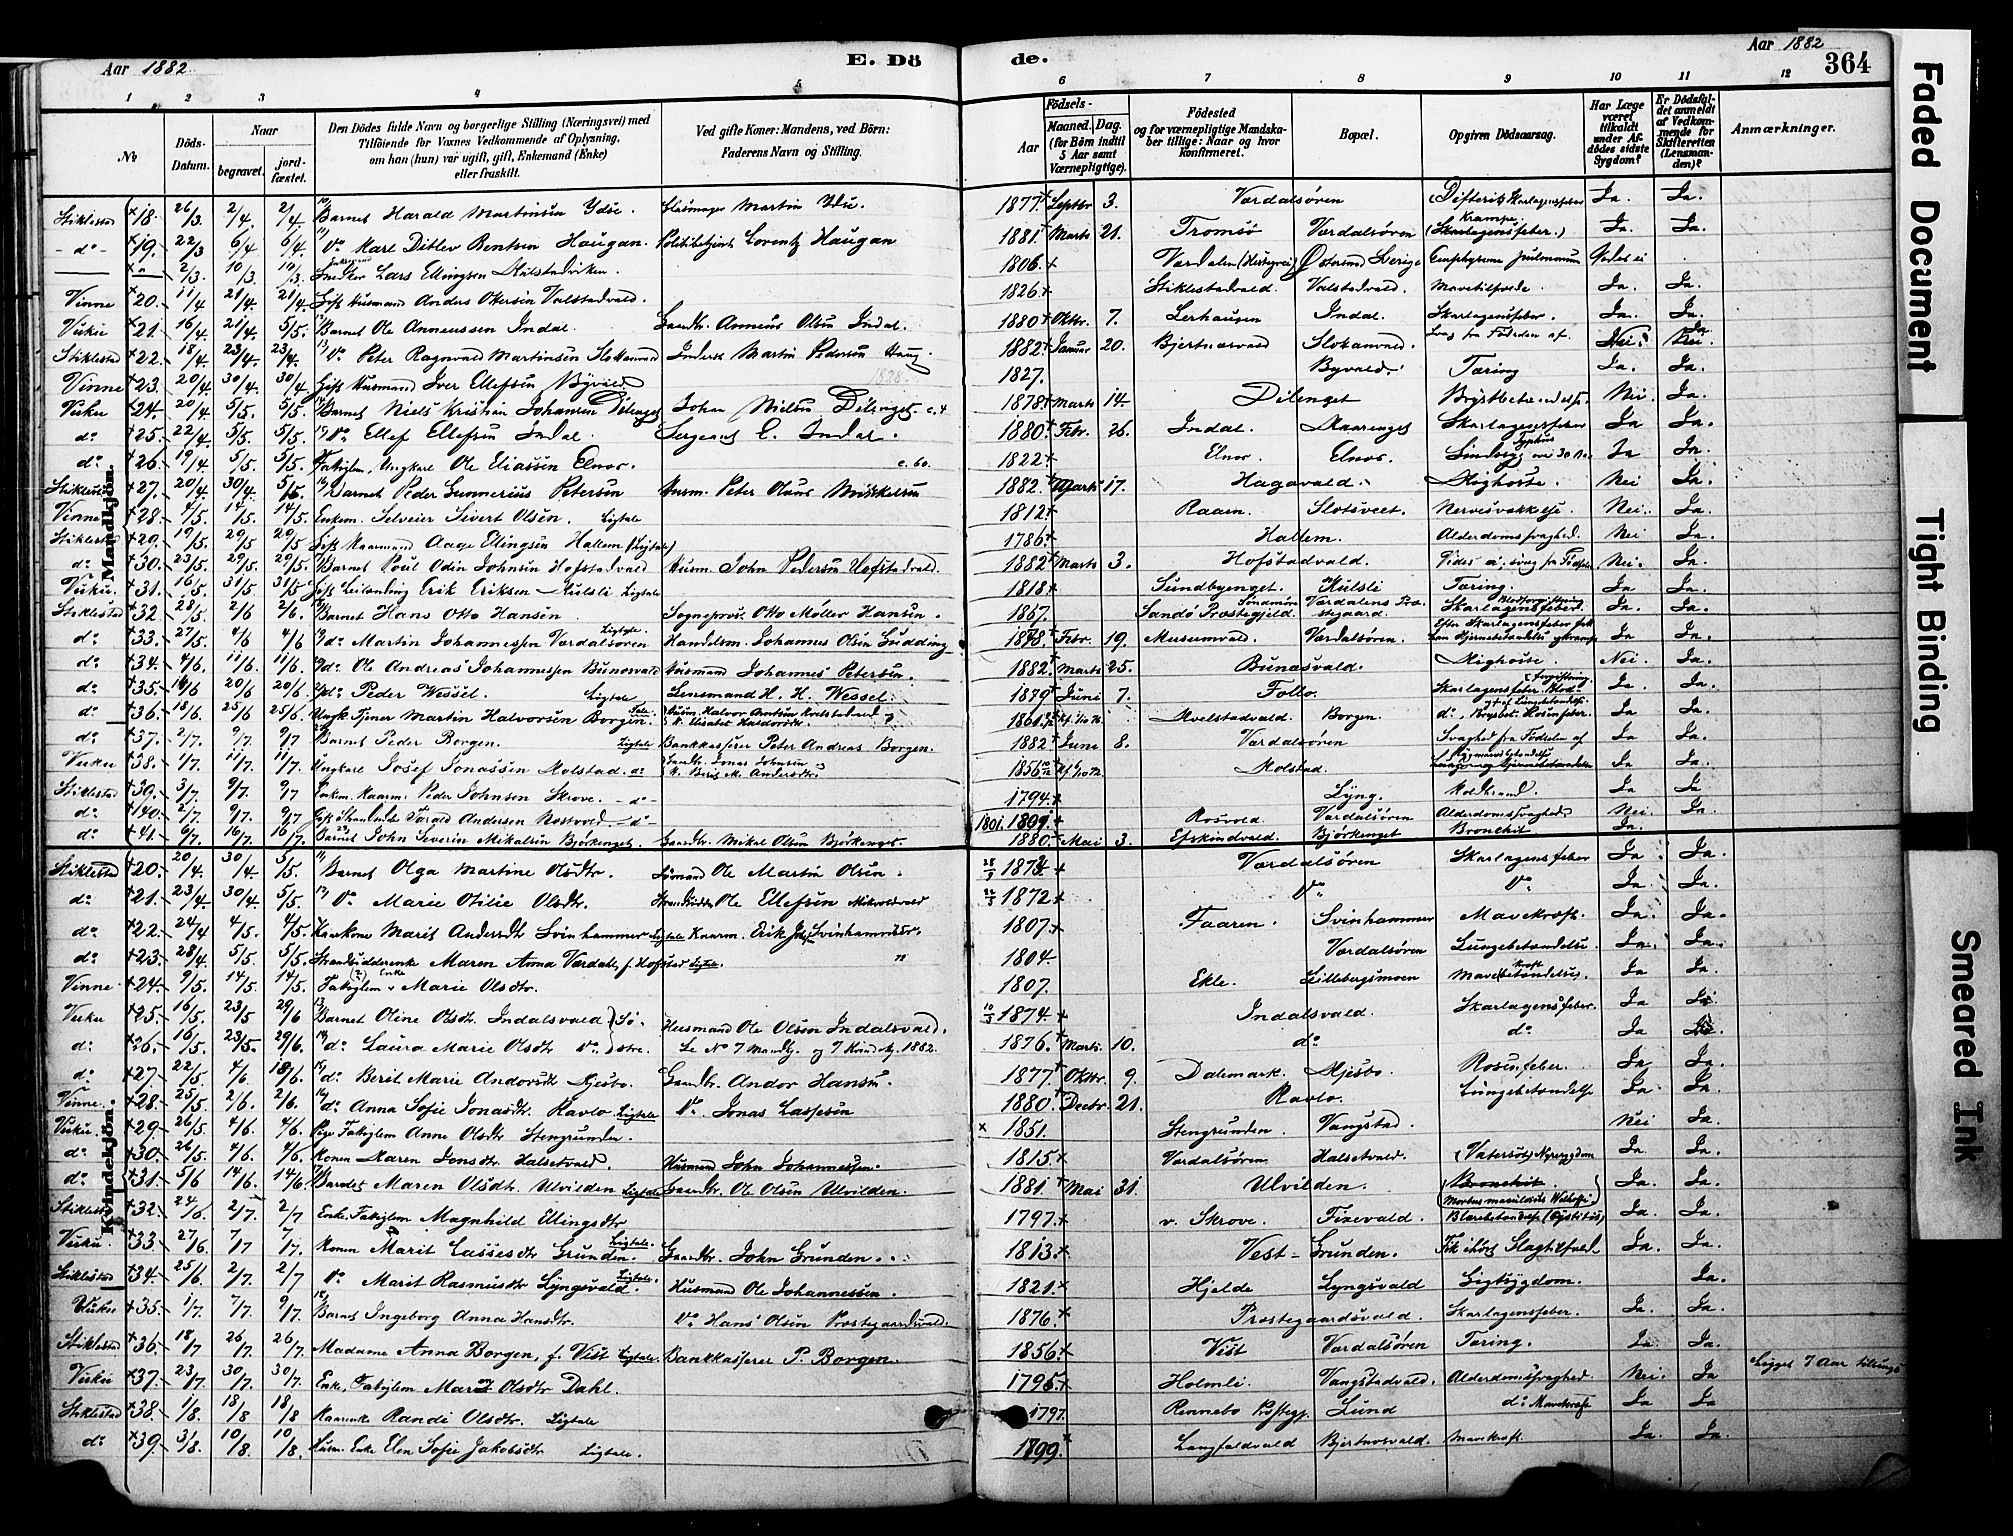 Aar 1882
E. Dö
de.
Aar 1882
364
1 2 3 4 5 6 7 8 9 10 11 12
No
Döds-Datum.
Naar
begravet.
jordfæstet.
Den Dödes fulde Navn og borgerlige Stilling (Næringsvei) med
Tilföiende for Voxnes Vedkommende af Oplysning,
om han (hun) var ugift, gift, Enkemand (Enke)
eller fraskilt.
Ved gifte Koner: Mandens, ved Börn:
Faderens Navn og Stilling.
Födsels-
Aar
Maaned. Dag.
(for Börn indtil
5 Aar samt
Værnepligtige).
Födested
og for værnepligtige Mandskaber tillige: Naar og hvor
konfirmeret.
Bopæl.
Opgiven Dödsaarsag.
Har Læge været tilkaldt under Afdödes sidste Sygdom?
Er Dödsfaldet anmeldt af Vedkommende for Skifteretten (Lensmanden)?
Anmærkninger.
Mandkjön.
Stiklestad 18. 26/3 2/4. 2/4. Barnet Harald Martinsen Ydse. Martin Ydse. 1877 Septbr 3. Værdalsören Difterit Skarlagensfeber Ja. Ja.
d° 19. 22/3 6/4 6/4 D° Karl Ditlev Bentsen Haugan. Lorentz Haugan 1881 Marts 21. Tromsö Værdalsören Krampe (Skarlagensfeber.) Ja. Ja.
2/3. 10/3. 10/3. Lars Ellingsen 1806 Værdalen Östersund Sverige
Vinne 20. 11/4. 21/4. 21/4. Gift Husmand Anders Ottersen Valstadvald. 1826 Stiklestadvald. Valstadvald. Ja. Ja.
Vuku 21. 16/4. 21/4. 5/5. Barnet Ole Anneussen Indal. Gaardbr. Anneus Olsen Indal. 1880 Oktbr. 7. Lerhaugen Indal. Skarlagensfeber. Ja. Ja.
Stiklestad 22. 18/4. 23/4. 23/4. D° Peter Ragnvald Martinsen Inderst Martin Pedersen Haug. 1882 Januar 20. Svag fra Födselen af. Nei. Ja
Vinne 23. 20/4 30/4 30/4. Gift Husmand Iver Ellefsen Byvald 1828. 1827. Byvald. Tæring Ja. Ja.
Vuku 24. 20/4 5/5. 5/5. Barnet Niels Kristian Johansen Dilenget Johan Nielsen Dilenget. 1878 Marts 14. Dilenget Brystbetændelse. Nei. Ja.
d° 25. 22/4. 5/5. 5/5. D° Ellef Ellefsen Indal. Sergeant E. Indal. 1880 Febr. 26. Indal. Skarlagensfeber Ja Ja.
d° 26. 19/4 5/5. 5/5. Fattiglem, Ungkarl Ole Eliassen Elnes. 1822 Elnes. Elnes. Typhus Ja Ja.
Stiklestad 27. 20/4. 30/4. Barnet Peder Gunnerius Petersen Husm. Peter Olaus Mikkelsen 1882 Marts 17. Hagavald. Kighoste. Nei Ja.
Vinne 28. 4/5 14/5. 14/5. Enkem. Selveier Sivert Olsen. Ligtale 1812 Raaen. Slotsveet. Nei. Ja.
Stiklestad 29. 19/5. 29/5. 29/5 Gift Kaarmand Aage Ellingsen Hallem (Ligtale) 1786 Hallem. Alderdomssvaghed. Nei Ja.
d° 30. 23/5. 29/5. 29/5. Barnet Poul Odin Johnsen Hofstadvald Husm. John Pedersen Hofstadvald. 1882 Marts 3. Hofstadvald. Vides ei, svag fra Födselen Nei. Ja.
Vuku. 31. 16/5. 31/5. 31/5 Erik Eriksen Kulsli Ligtale 1818 Sundbyenget. Kulsli Tæring. Ja Ja
Stiklestad 32 28/5. 2/6 2/6. Barnet Hans Otto Hansen Sogneprest Otto Möller Hansen. 1867. Sandö Præstegjeld. Söndmöre Værdalens Præstegaard. Skarlagensfeber. Blodforgiftning Ja. Ja.
d° 33. 27/5. 4/6 4/6 d° Martin Johannessen Værdalsören Ligtale. Handelsm. Johannes Olsen Sudding 1878 Febr. 19. Musumvald. Værdalsören. Efter Skarlagensfeber Ja Ja.
d° 34. 4/6. 11/6. 11/6. d° Ole Andreas Johannessen Bunesvald Husmand Johannes Petersen. 1882 Marts 25. Bunæsvald. Kighoste. Nei. Ja.
d° 35. 14/6 20/6 20/6. d° Peder Wessel. Ligtale Lensmand H. H. Wessel. 1879 Juni 7. Follo. Skarlagensfeber, Blodforgiftning. Ja Ja.
d° 36. 18/6 25/6 25/6. Ungk. Tjener Martin Halvorsen Borgen. Tale 1861 Kvelstadvald. Borgen. d°, Brystbet. Rosenfeber. Ja Ja.
d° 37. 2/7. 9/7. 9/7 Barnet Peder Borgen. Ligtale Bankkasserer Peter Andreas Borgen. 1882 Juni 8. Værdalsören Svaghed fra Födselen af Ja Ja.
Vuku 38. 1/7. 11/7. 11/7. Ungkarl Josef Jonassen Molstad. d° Gaardbr. Jonas Johnsen 1856 Molstad. Ja Ja.
Stiklestad 39. 3/7 9/7. 9/7 Enkem. Kaarm. Peder Johnsen Skrove. -d°- 1794 Lyng. Koldbrand. Ja Ja
d° 40. 2/7. 9/7. 9/7 Tarald Andersen Rosvold. -d°- 1801. 1809. Rosvold. Værdalsören Alderdomssvaghed. Nei. Ja
d° 41. 9/7. 16/7. 16/7. Barnet John Severin Mikalsen Björkenget. Gaardbr. Mikal Olsen Björkenget. 1880 Mai 3. Efskindvald. Björkenget Bronchit Ja.
Kvindekjön.
Stiklestad 20. 20/4. 30/4. 5/5. Barnet Olga Martine Olsdtr. Sömand Ole Martin Olsen. 1873 Værdalsören Skarlagensfeber Ja. Ja.
d° 21. 23/4. 30/4. 5/5. D° Marie Otilie Olsdtr. Ole Ellefsen 1872 D° D° Ja. Ja.
d° 22. 24/4 4/5. 4/5. Kaarkone Marit Andersdtr Svinhammer Ligtale Kaarm. Erik Svinhammer. 1807. Faaren. Svinhammer Mavekræft. Ja. Ja.
d° 23. 28/4 5/5. 5/5. Strandsidderenke Maren Anna Værdal, f. Hofstad Ligtale. " 1804. Værdalsören Lungebetændelse. Ja. Ja.
Vinne 24. 9/5. 14/5. 14/5. Fattiglem (?) Enke Marie Olsdtr. 1807. Ekle. Lillebergsmoen Mavebetændelse. Kræft Ja Ja
Vuku 25. 16/5. 23/5 29/6 Barnet Oline Olsdtr. Indalsvald Husmand Ole Olsen Indalsvald. 1874. Indalsvald. Skarlagensfeber. Ja Ja
d° 26. 16/5. 23/5. 29/6. d° Laura Marie Olsdtr D° Sö-stre. Se No 7 Mandkj. og 7 Kvindekj. 1882. 1876. Marts. 10. d° d° Ja Ja
d° 27. 22/5. 4/6. 18/6. d° Berit Marie Andorsdtr Kjesbo. Gaardbr. Andor Hansen. 1877 Oktbr. 9. Dalemark. Kjesbo. Rosenfeber. Ja Ja
Vinne. 28. 25/5. 2/6. 2/6. d° Anna Sofie Jonasdtr. Ravlo Ligtale D° Jonas Lassesen 1880 Decbr. 21. Ravlo. Lungebetændelse Ja. Ja.
Vuku. 29. 26/5 4/6. 4/6. Pige Fattiglem Anne Olsdtr Stengrunden. 1851. Stengrunden. Vangstad. Nei Ja.
d° 30. 26/5. 4/6. 4/6. Konen Karen Jensdtr. Halsetvald. Husmand John Johannessen. 1815. Værdalsören Halsetvald. (Vatersot) Nyresygdom Ja. Ja.
d° 31. 5/6 14/6. 14/6. Barnet Maren Olsdtr. Ulvilden Ligtale Gaardbr. Ole Olsen Ulvilden. 1881. Mai 31. Ulvilden. Bronchit. (Morbus maculosus Werlhofi) Ja. Ja.
Stiklestad 32. 24/6. 2/7. 2/7 Enke. Fattiglem Magnhild Ellingsdtr 1797. v. Skrove. Fizevald. Blærebetændelse (Cystitis) Ja. Ja.
Vuku 33. 27/6 7/7 7/7. Konen Marit Lassesdtr Grunden. Ligtale. Gaardbr. John Grunden. 1813. Vest-Grunden. Slagtilfæld Ja. Ja.
Stiklestad 34. 25/6. 2/7. 2/7 D° Marit Rasmusdtr Lyngsvald. Ligtale. Husmand Ole Johannessen. 1821. Hjelde Lyngsvald Gigtsygdom. Ja.
Vuku 35. 1/7. 7/7. 9/7. Barnet Ingeborg Anna Hansdtr. D° Hans Olsen Præstegaardsvald. 1876. Præstegaardsvald. Skarlagensfeber. Ja. Ja.
Stiklestad 36. 18/7 26/7. 26/7. Madame Anna Borgen, f. Vist Ligtale. Bankkasserer P. Borgen. 1856 Vist Værdalsören Tæring. Ja Ja.
Vuku 37. 23/7 30/7. 30/7. Enke, Fattiglem Marit Olsdtr Dahl. 1795. Holmli. Vangstadvald. Alderdomssvaghed Nei. Ja Ligget 7 Aar tilsengs
Stiklestad 38. 1/8 18/8 18/8 Kaarenke Randi Olsdtr. Ligtale 1797. Rennebo Præstegj. Lund d° Mavekræft Ja Ja
d° 39. 3/8. 10/8. 10/8. Husm. Enke Elen Sofie Jakobsdtr Ligtale. 1899. Langfaldvald Bjertnesvald. Mavekræft. Ja Ja.
Faded Document
Tight Binding
Smeared Ink